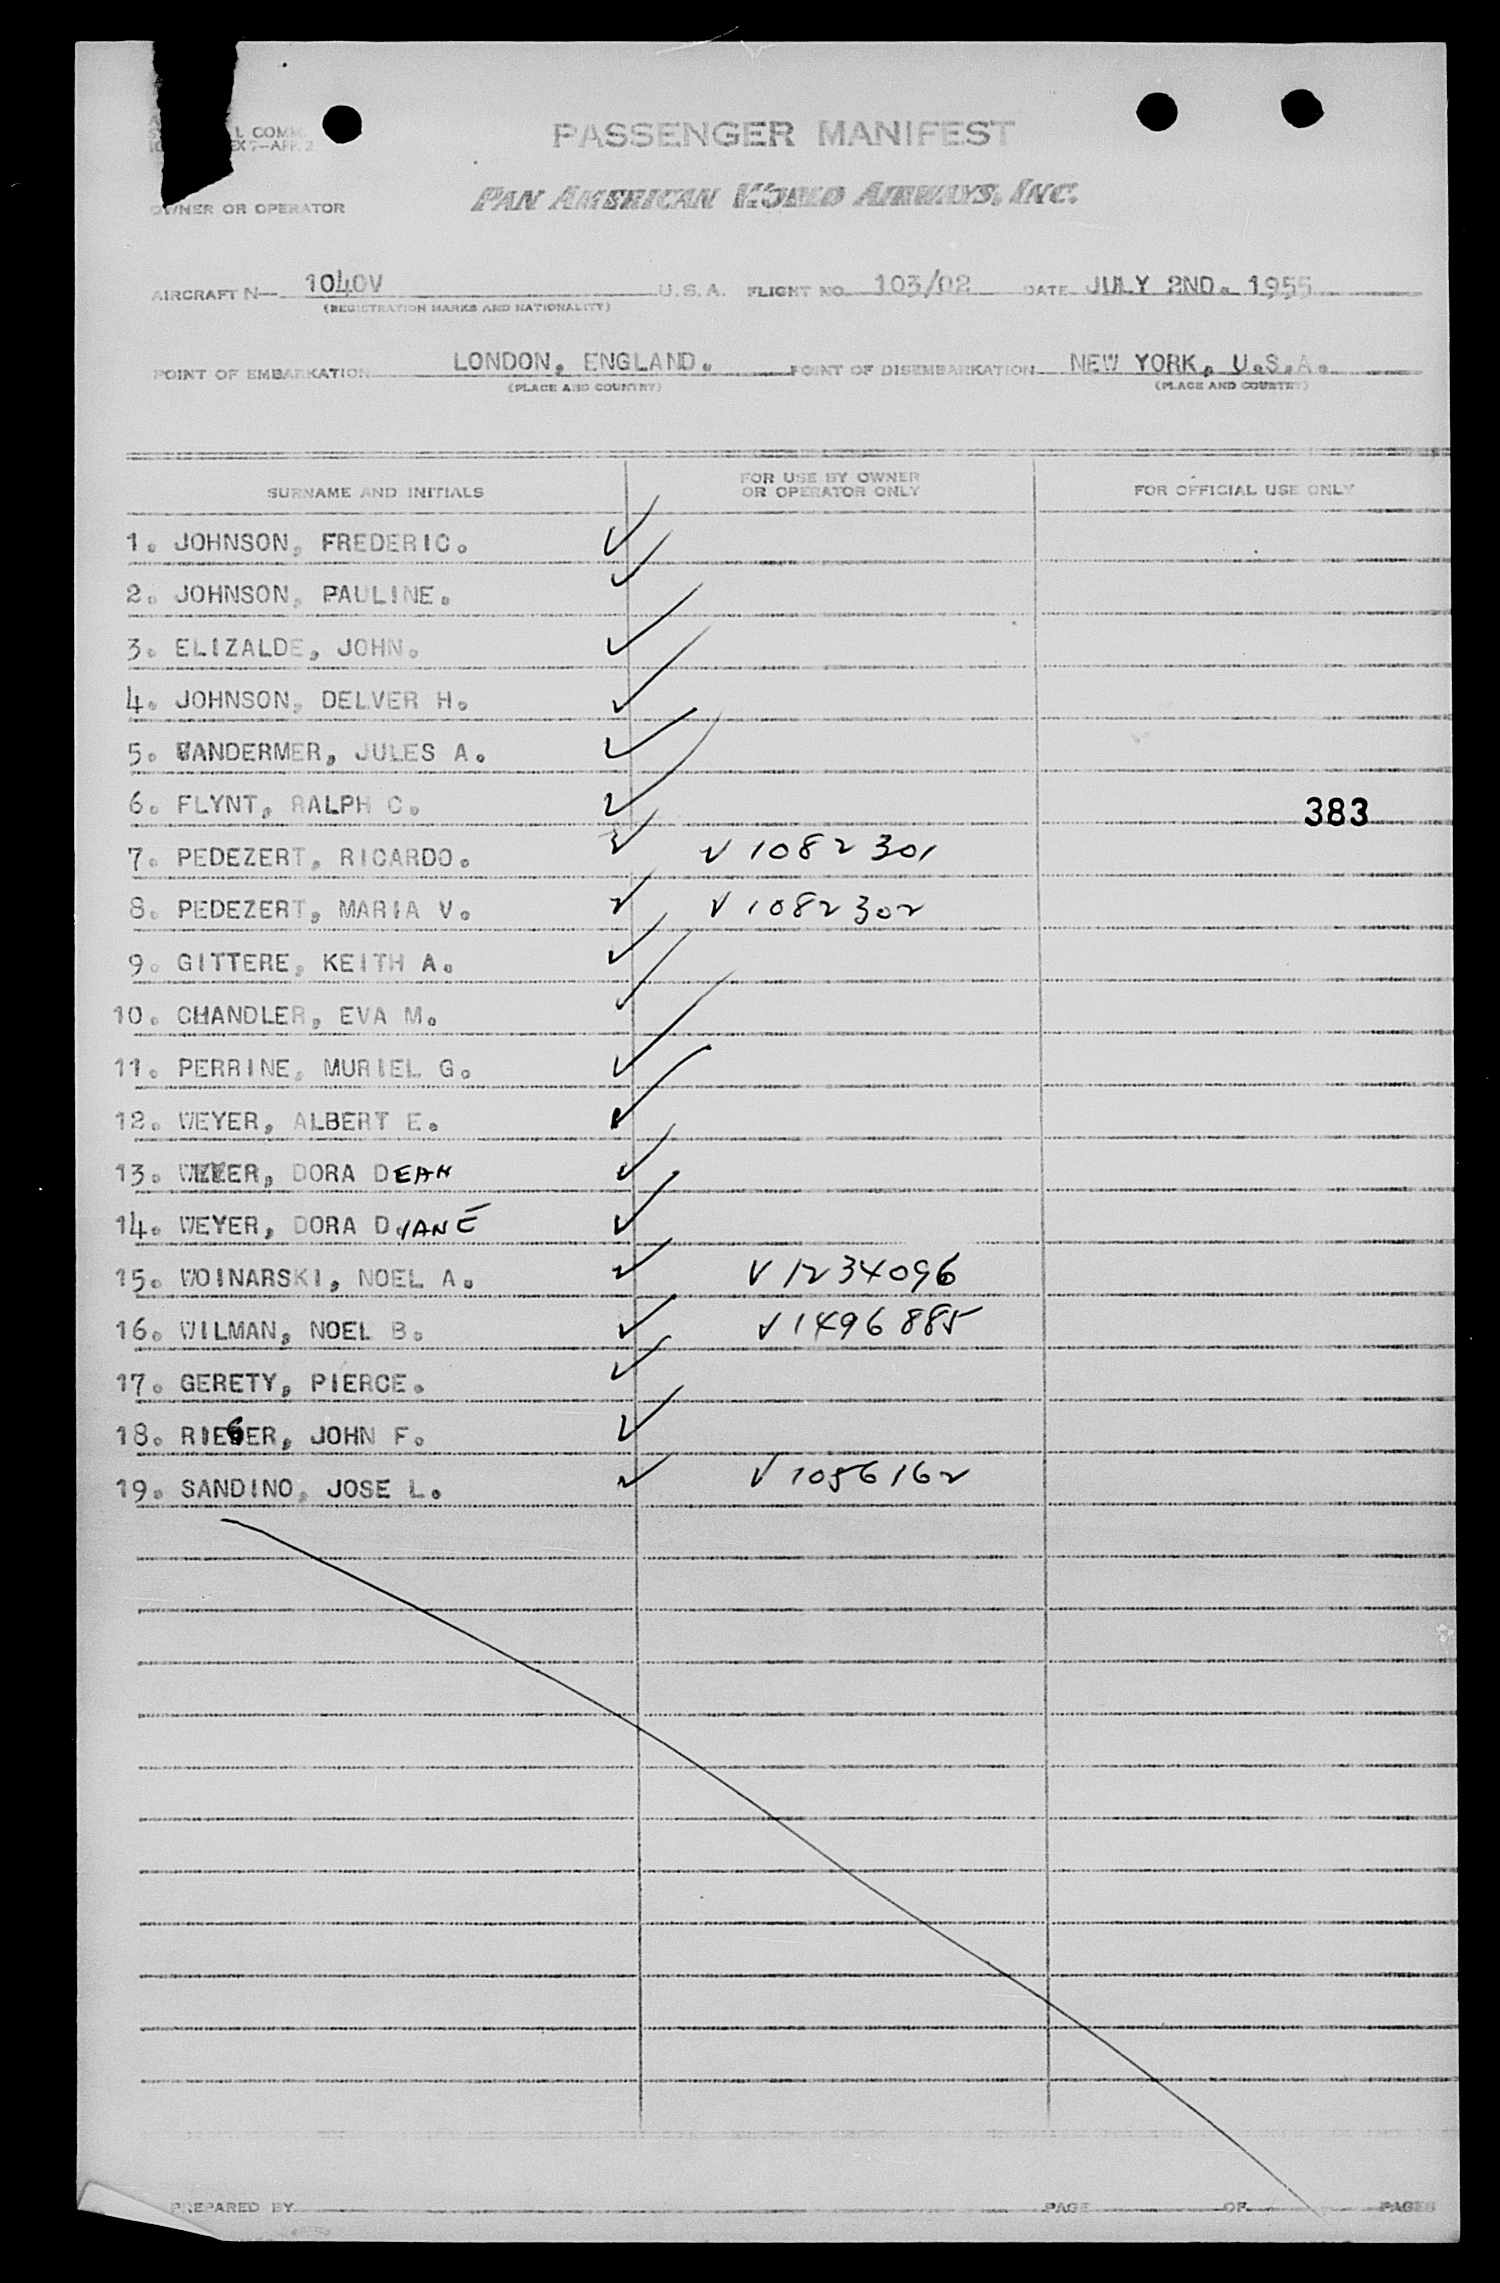 L COMM.
EX 7—APP. 2
PASSENGER MANIFEST
PAN AMERICAN WORLD AIRWAYS, INC.
OWNER OR OPERATOR
AIRCRAFT N— 1040V U.S.A. FLIGHT NO. 103/02 DATE JULY 2ND. 1955
(REGISTRATION MARKS AND NATIONALITY)
POINT OF EMBARKATION LONDON, ENGLAND. POINT OF DISEMBARKATION NEW YORK, U.S.A.
(PLACE AND COUNTRY) (PLACE AND COUNTRY)
SURNAME AND INITIALS FOR USE BY OWNER OR OPERATOR ONLY FOR OFFICIAL USE ONLY
1. JOHNSON, FREDERIC. ✓
2. JOHNSON, PAULINE. ✓
3. ELIZALDE, JOHN. ✓
4. JOHNSON, DELVER H. ✓
5. VANDERMER, JULES A. ✓
6. FLYNT, RALPH C. ✓ 383
7. PEDEZERT, RICARDO. ✓ V 1082301
8. PEDEZERT, MARIA V. ✓ V 1082302
9. GITTERE, KEITH A. ✓
10. CHANDLER, EVA M. ✓
11. PERRINE, MURIEL G. ✓
12. WEYER, ALBERT E. ✓
13. WEYER, DORA DEAN ✓
14. WEYER, DORA DIANE ✓
15. WOINARSKI, NOEL A. ✓ V 1234096
16. WILMAN, NOEL B. ✓ V 1496885
17. GERETY, PIERCE. ✓
18. RIEGER, JOHN F. ✓
19. SANDINO, JOSE L. ✓ V 1056162
PREPARED BY PAGE OF PAGES